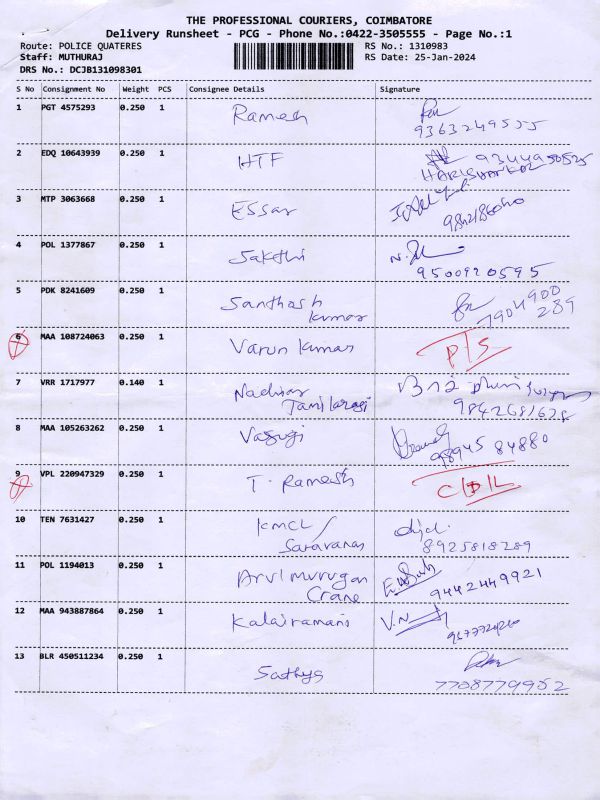 THE PROFESSIONAL COURIERS, COIMBATORE
Delivery Runsheet - PCG - Phone No.:0422-3505555 - Page No.:1
Route: POLICE QUATERES RS No.: 1310983
Staff: MUTHURAJ RS Date: 25-Jan-2024
DRS No.: DCJB131098301
S No Consignment No Weight PCS Consignee Details Signature
1 PGT 4575293 0.250 1 Ramesh
9363249555
2 EDQ 10643939 0.250 1 HTF 9344950525
3 MTP 3063668 0.250 1 ESSar
4 POL 1377867 0.250 1 Sakthi
9500920595
5 PDK 8241609 0.250 1 Santhosh
kumar
7904900
289
6 MAA 108724063 0.250 1 Varun kumar P/S
7 VRR 1717977 0.140 1 Nadhiya
Tamilarasi
9842681628
8 MAA 105263262 0.250 1 Vasugi
98945 84880
9 VPL 220947329 0.250 1 T. Ramesh
10 TEN 7631427 0.250 1 KMCL/
Saravanan
8925818289
11 POL 1194013 0.250 1 Arulmurugan
Crane
9442449921
12 MAA 943887864 0.250 1 Kalairamani V.N
13 BLR 450511234 0.250 1 Sathya
7708779952